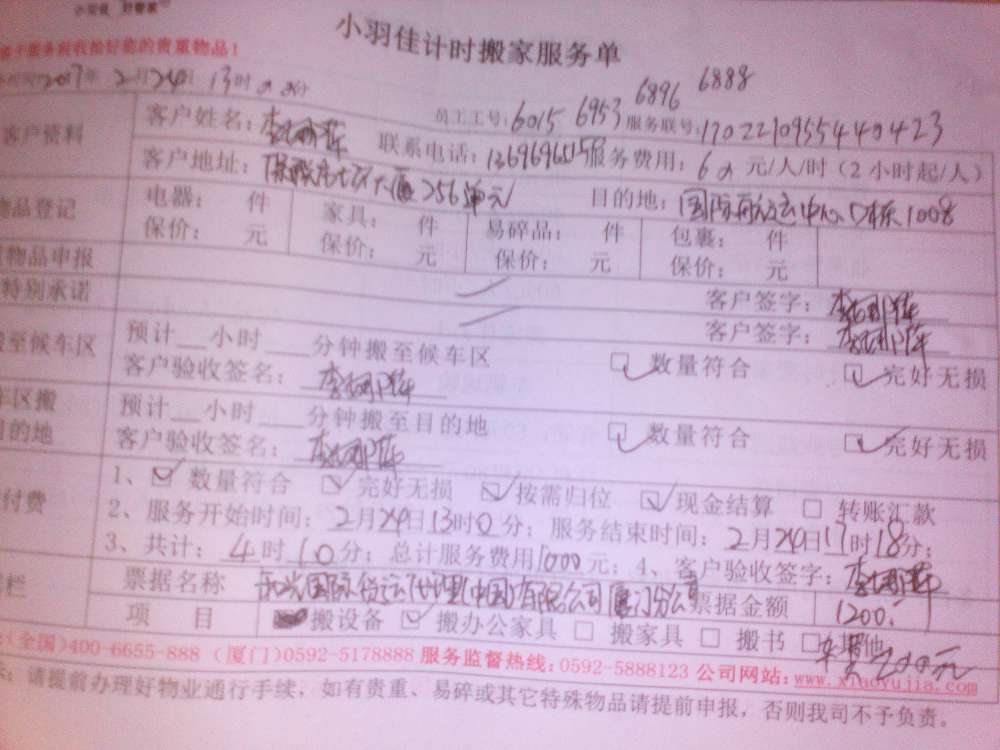 小羽佳计时搬家服务单
给好您的贵重物品！
2017年2月24日13时00分
6896 6888
客户资料 客户姓名： 员工工号：6015 6953 服务联号：17022109554440423
联系电话： 服务费用：60元/人/时（2小时起/人）
客户地址： 大厦256单元 目的地：国际航运中心D栋1008
物品登记 电器： 件 家具： 件 易碎品： 件 包裹： 件
保价： 元 保价： 元 保价： 元 保价： 元
物品申报 客户签字：
特别承诺 客户签字：
至候车区 预计__小时___分钟搬至候车区 数量符合 完好无损
客户验收签名：
车区搬 预计__小时___分钟搬至目的地 数量符合 完好无损
目的地 客户验收签名：
付费 1、 数量符合 完好无损 按需归位 现金结算 转账汇款
2、服务开始时间：2月24日13时0分；服务结束时间：2月24日17时18分；
3、共计：4时10分；总计服务费用1000元；4、客户验收签字：
栏 票据名称 永兴国际货运代理(中国)有限公司厦门分公司 票据金额 1200.
项 目 搬设备 搬办公家具 搬家具 搬书 其他
车费200元
(全国)400-6655-888 (厦门)0592-5178888 服务监督热线：0592-5888123 公司网站：www.xiaoyujia.com
：请提前办理好物业通行手续，如有贵重、易碎或其它特殊物品请提前申报，否则我司不予负责。